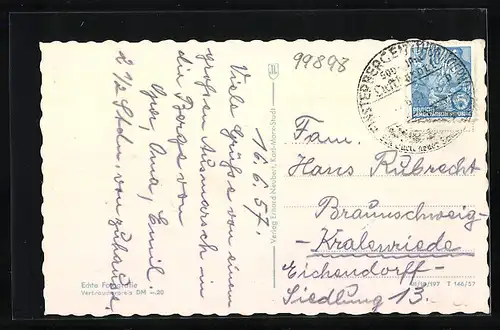 99898
16.6.57.
Viele Grüsse von einem
großen Ausmarsch in
die Berge von
Opa, Oma, Emil.
2 1/2 Stdn. von zuhause.
Echte Fotografie
Verbraucherpreis DM -.20
Verlag Erhard Neubert, Karl-Marx-Stadt
FINSTERBERGEN (THÜR
DEUTSCHE
DEMOKRATISCHE REPUBLIK
5
Fam.
Hans Rubrecht
Braunschweig-
-Kralenriede
Eichendorff-
Siedlung 13.
T 146/57